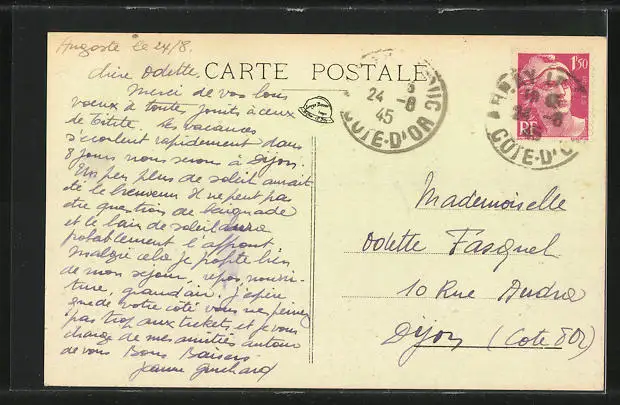 le 24/8.
chère Odette,
CARTE POSTALE
Merci de vos bons
vœux à toute joints à ceux
de Titite. les vacances
s'écoulent rapidement dans
8 jours nous serons à Dijon.
Un peu plus de soleil aurait
été le bienvenu il ne peut pas
être question de baignade
et le bain de soleil aura
probablement l'affront
malgré cela je profite bien
de mon séjour, repos, nourri-
ture, grand air. J'espère
que de votre côté vous ne peinez
pas trop aux tickets et je vous
charge de mes amitiés autour
de vous Bons Baisers
Jeanne
24 -8
45
COTE-D'OR
1F50
RF
24 -8
45
COTE-D'O
Mademoiselle
Odette Fasquel
10 Rue
Dijon (Cote d'Or)